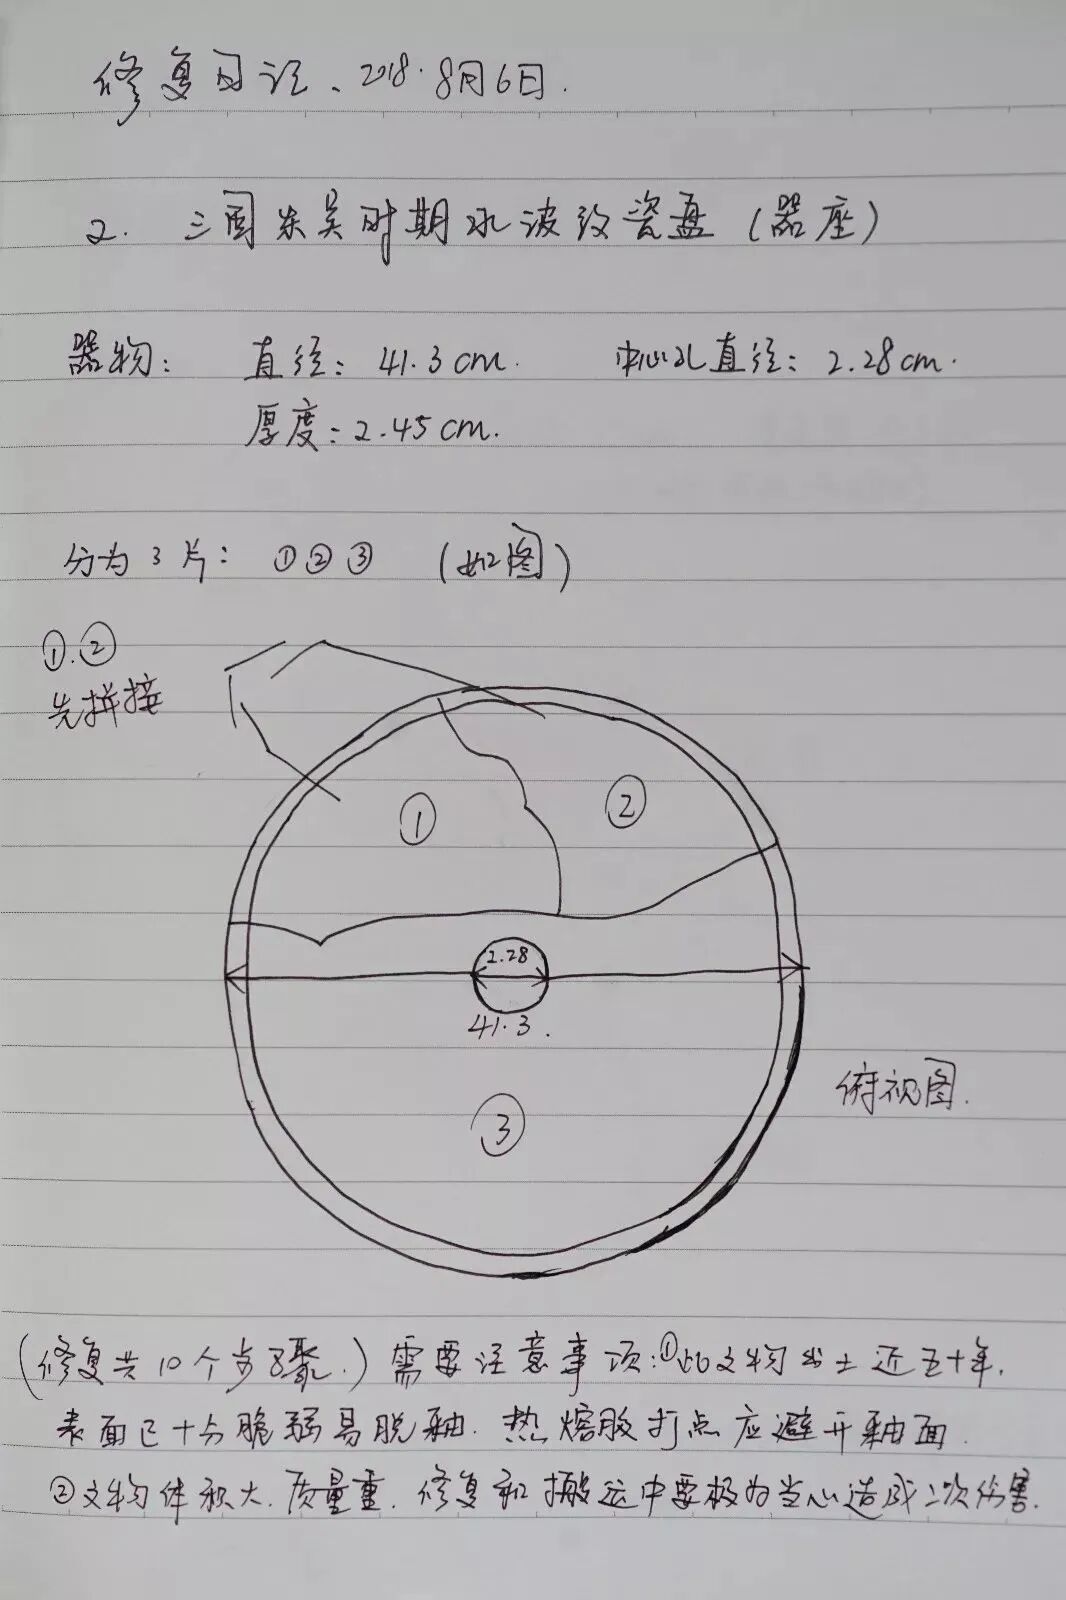 修复日记、2018.8月6日.
2. 三国东吴时期水波纹瓷盘(器座)
器物: 直径: 41.3cm. 中心孔直径: 2.28cm.
厚度: 2.45cm.
分为3片: ①②③ (如图)
①.②
先拼接
①
②
2.28
41.3.
俯视图.
③
(修复共10个步骤.) 需要注意事项:①此文物出土近五十年.
表面已十分脆弱易脱釉. 热熔胶打点应避开釉面.
②文物体积大.质量重.修复和搬运中要极为当心造成二次伤害.